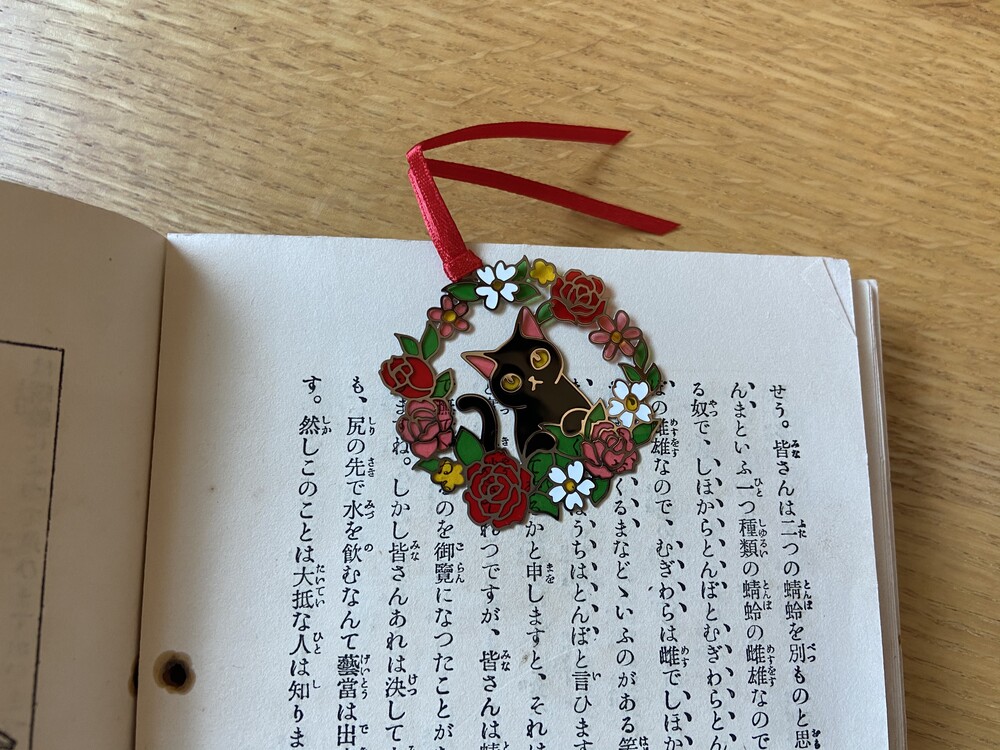 せう。皆さんは二つの蜻蛉を別ものと思
ん、まといふ一つ種類の蜻蛉の雌雄なので
る奴で、しほからとんぼとむぎわらとん
の雌雄なので、むぎわらは雌でしほか
くるまなどゝいふのがある
うちはとんぼと言ひます
かと申しますと、それは
れつですが、皆さんは
のを御覽になつたことが
ね。しかし皆さんあれは決して
も、尻の先で水を飲むなんて藝當は出
す。然しこのことは大抵な人は知りま